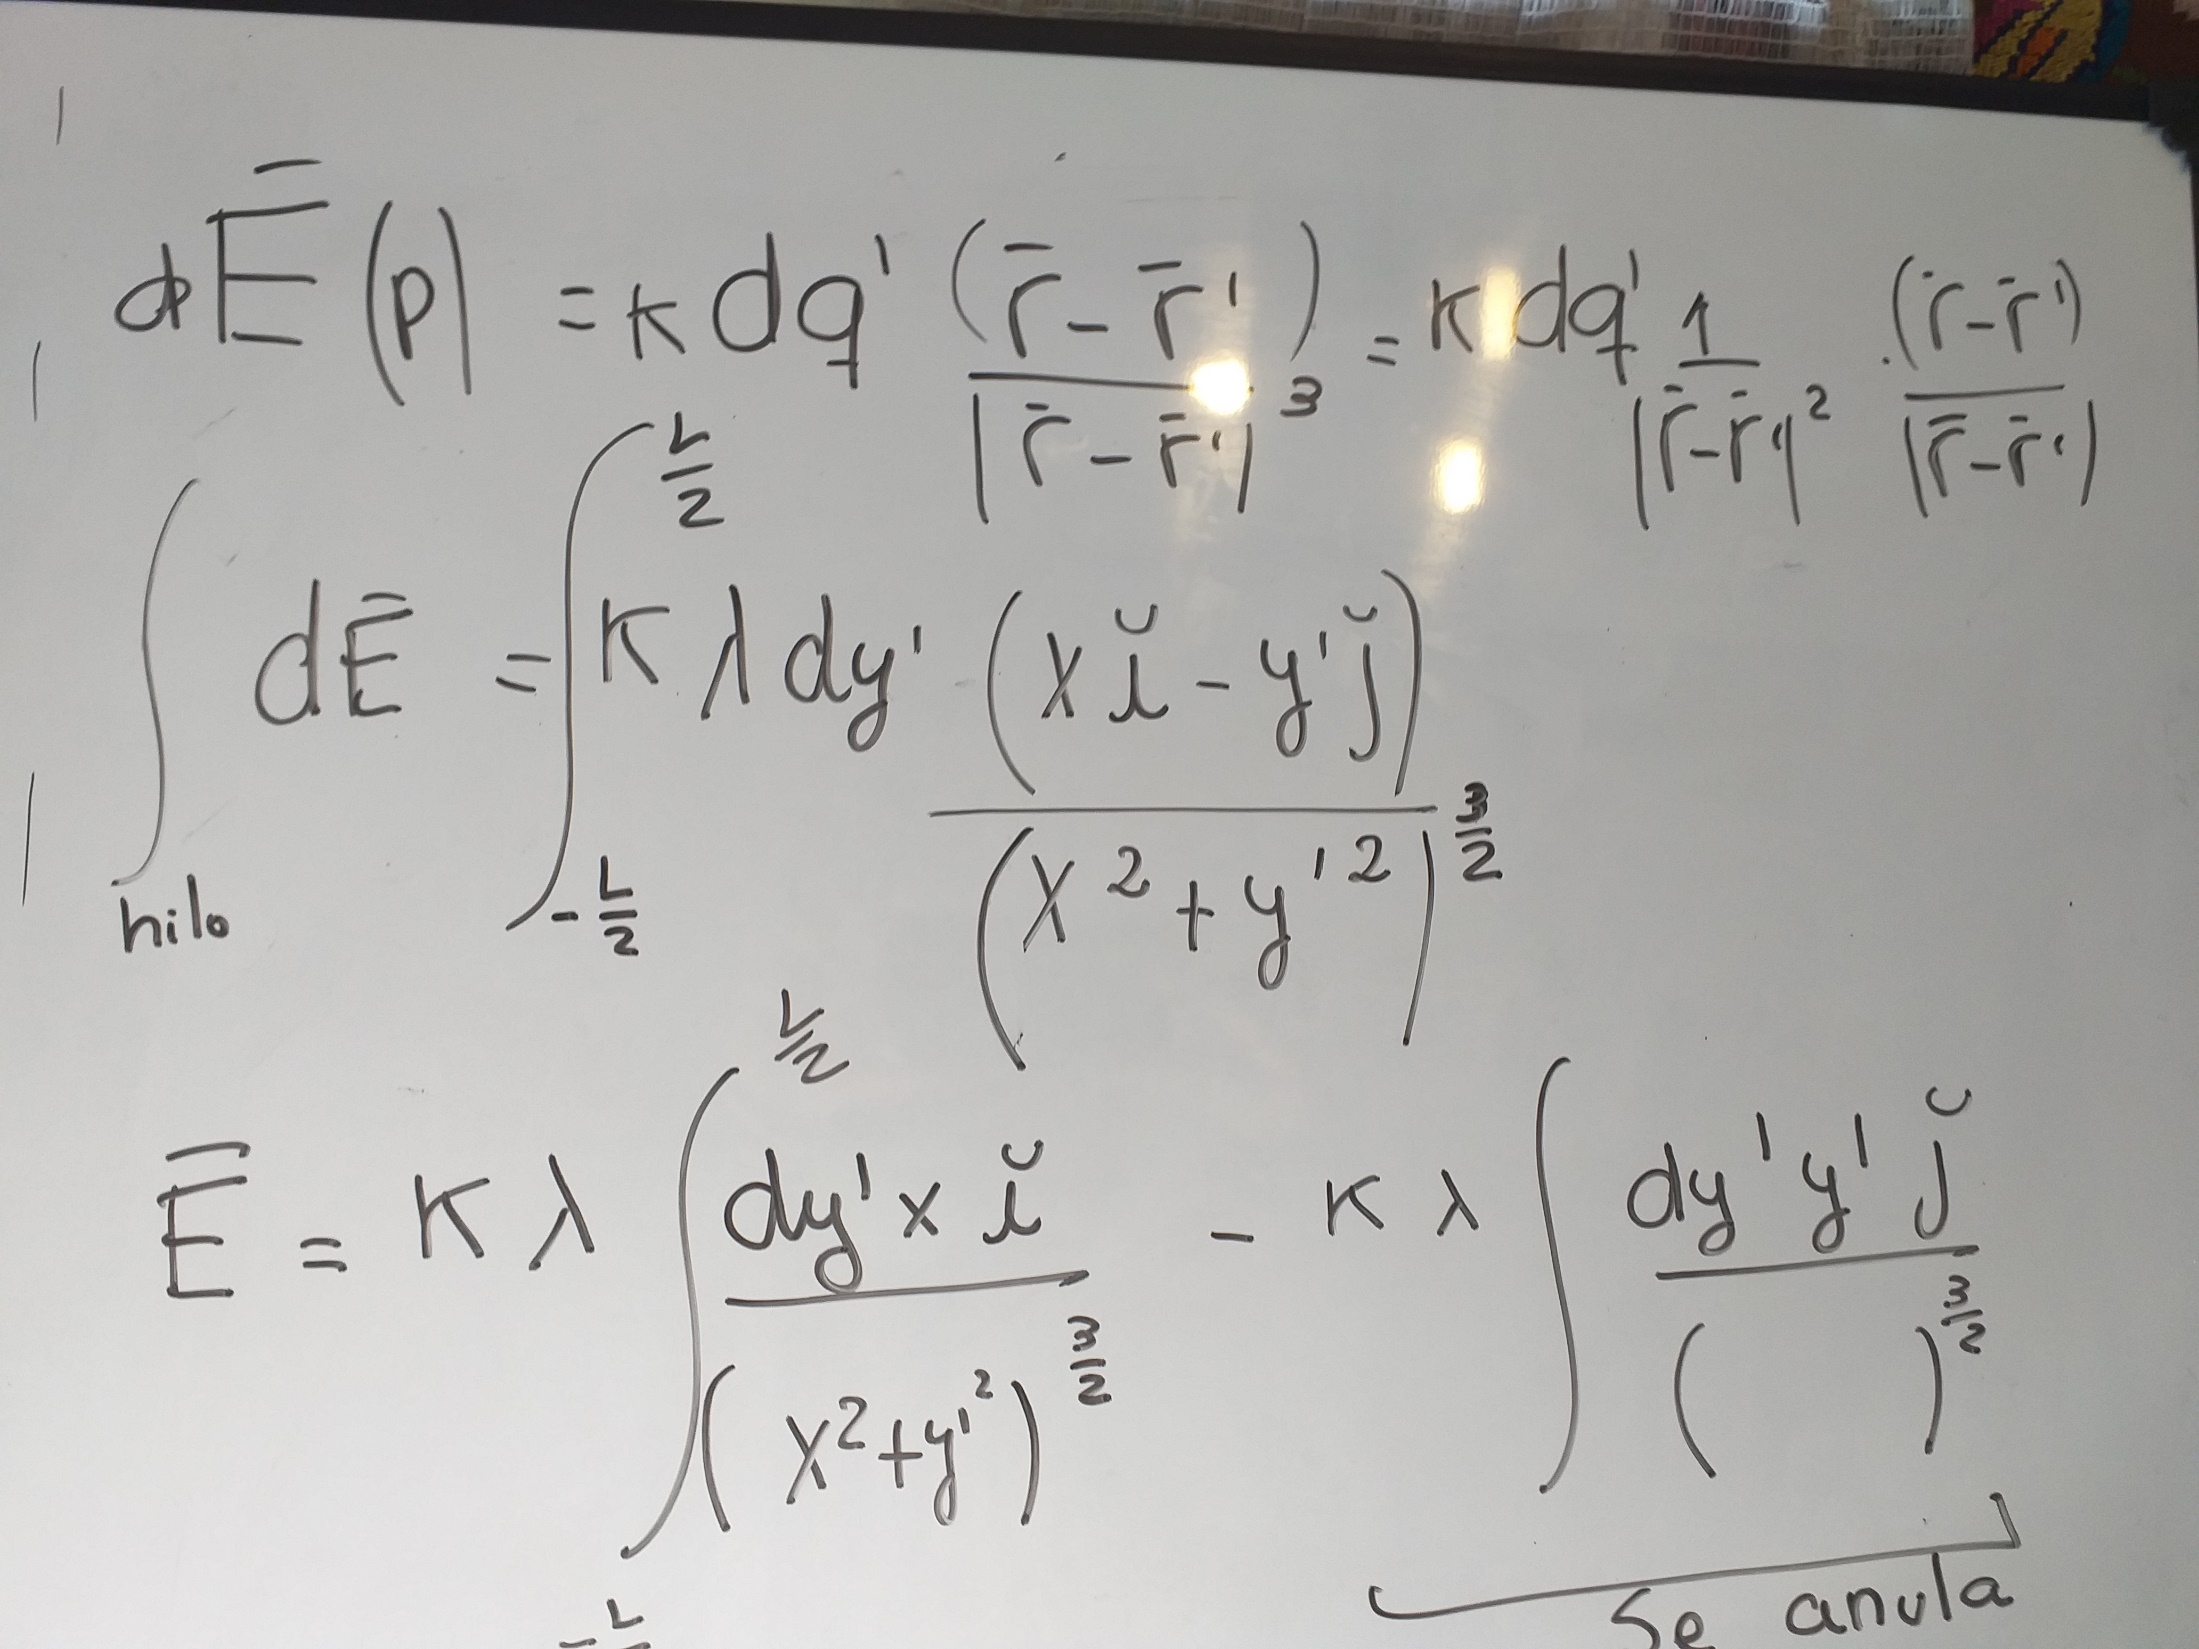 dE̅(p) = K dq' (r̅ - r̅') / |r̅ - r̅'|³ = K dq' 1 / |r̅ - r̅'|² · (r̅ - r̅') / |r̅ - r̅'|
∫_hilo dE̅ = ∫_{-L/2}^{L/2} K λ dy' (x ĭ - y' j̆) / (x² + y'²)^{3/2}
E̅ = K λ ∫_{-L/2}^{L/2} dy' x ĭ / (x² + y'²)^{3/2} - K λ ∫ dy' y' j̆ / ( )^{3/2}
Se anula